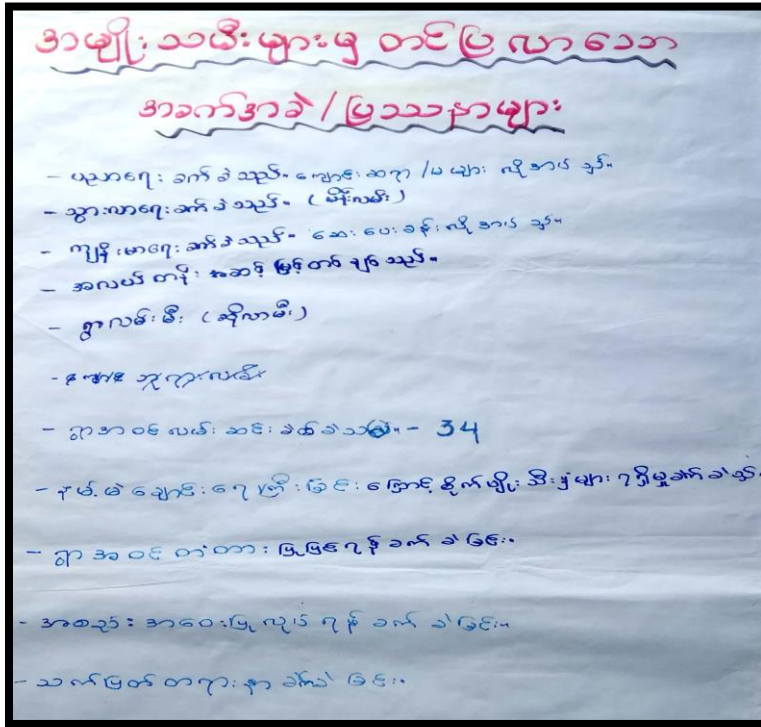 အမျိုးသမီးများမှ တင်ပြလာသော
အခက်အခဲ / ပြဿနာများ
- ပညာရေး ခက်ခဲသည်။ ကျောင်းဆရာ/မ များ လိုအပ်သည်။
- သွားလာရေး ခက်ခဲသည်။ (မိန်းလမ်း)
- ကျန်းမာရေး ခက်ခဲသည်။ ဆေးပေးခန်း လိုအပ်သည်။
- အလယ်တန်း အဆင့်မြှင့်တင်ချင်သည်။
- ရွာလမ်းမီး (ဆိုလာမီး)
- ရွာအဝင်လမ်း ဆင်းခက်ခဲသည်။ - 34
- ချောင်းရေကြီးခြင်းကြောင့် စိုက်ပျိုးသီးနှံများ ရရှိမှုခက်ခဲသည်။
- ရွာအဝင်တံတား ပြုပြင်ရန် ခက်ခဲခြင်း။
- အစည်းအဝေးပြုလုပ်ရန် ခက်ခဲခြင်း။
- သက်မြတ်တရားနာ ခက်ခဲခြင်း။